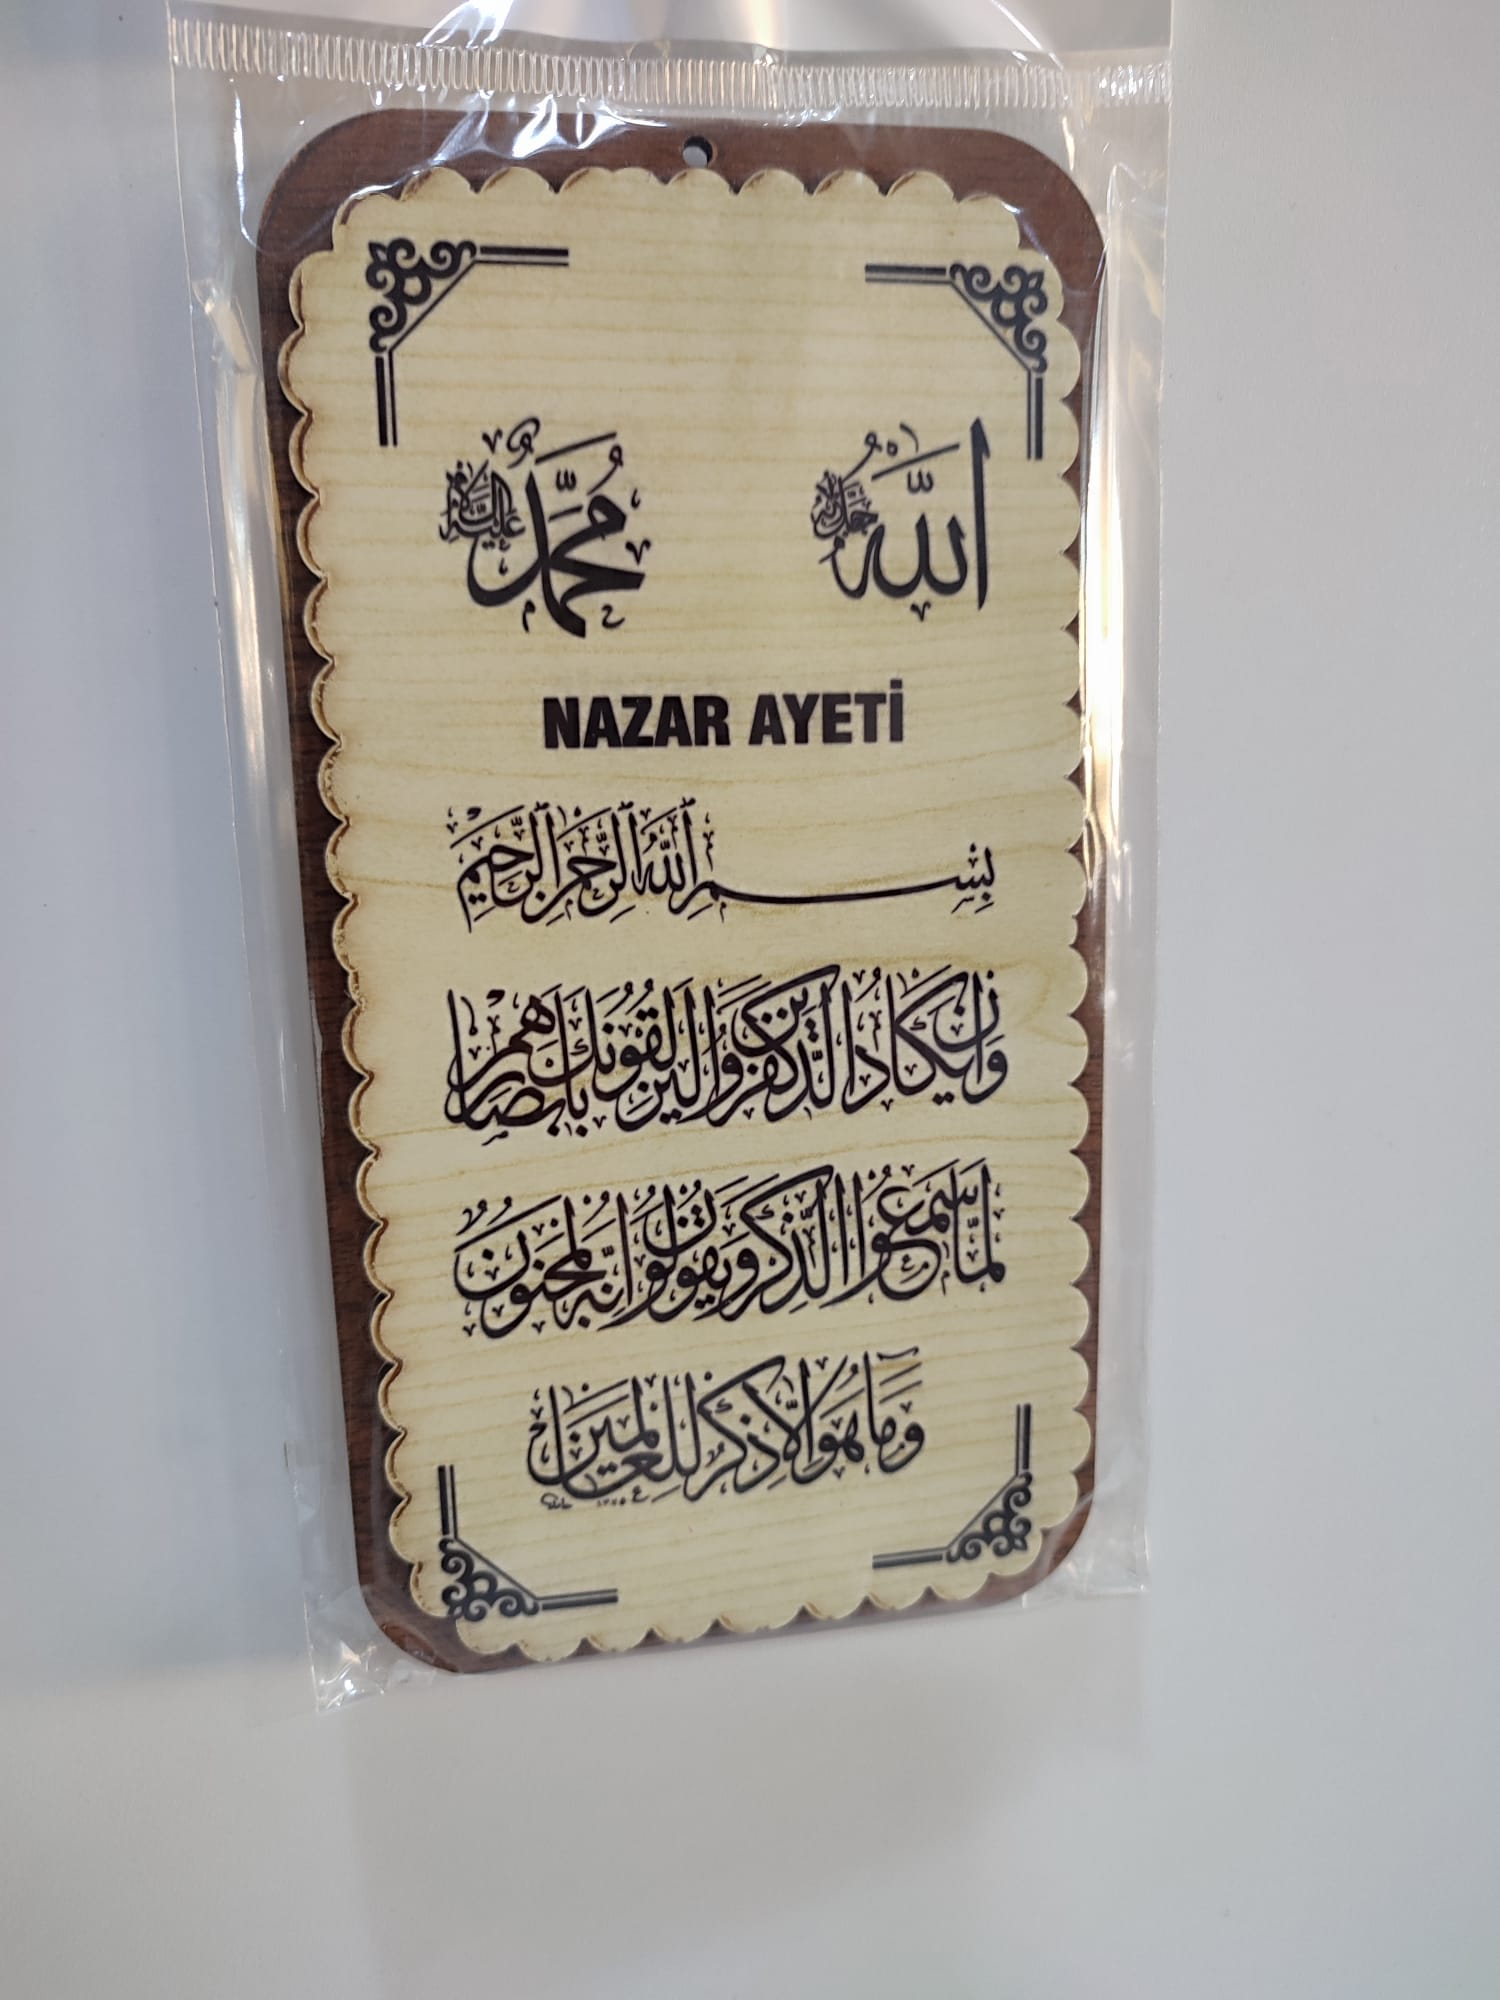 الله جل جلاله
محمد عليه السلام
NAZAR AYETİ
بِسْمِ اللَّهِ الرَّحْمَنِ الرَّحِيمِ
وَاِنْ يَكَادُ الَّذِينَ كَفَرُوا لَيُزْلِقُونَكَ بِاَبْصَارِهِمْ
لَمَّا سَمِعُوا الذِّكْرَ وَيَقُولُونَ اِنَّهُ لَمَجْنُونٌ
وَمَا هُوَ اِلَّا ذِكْرٌ لِلْعَالَمِينَ